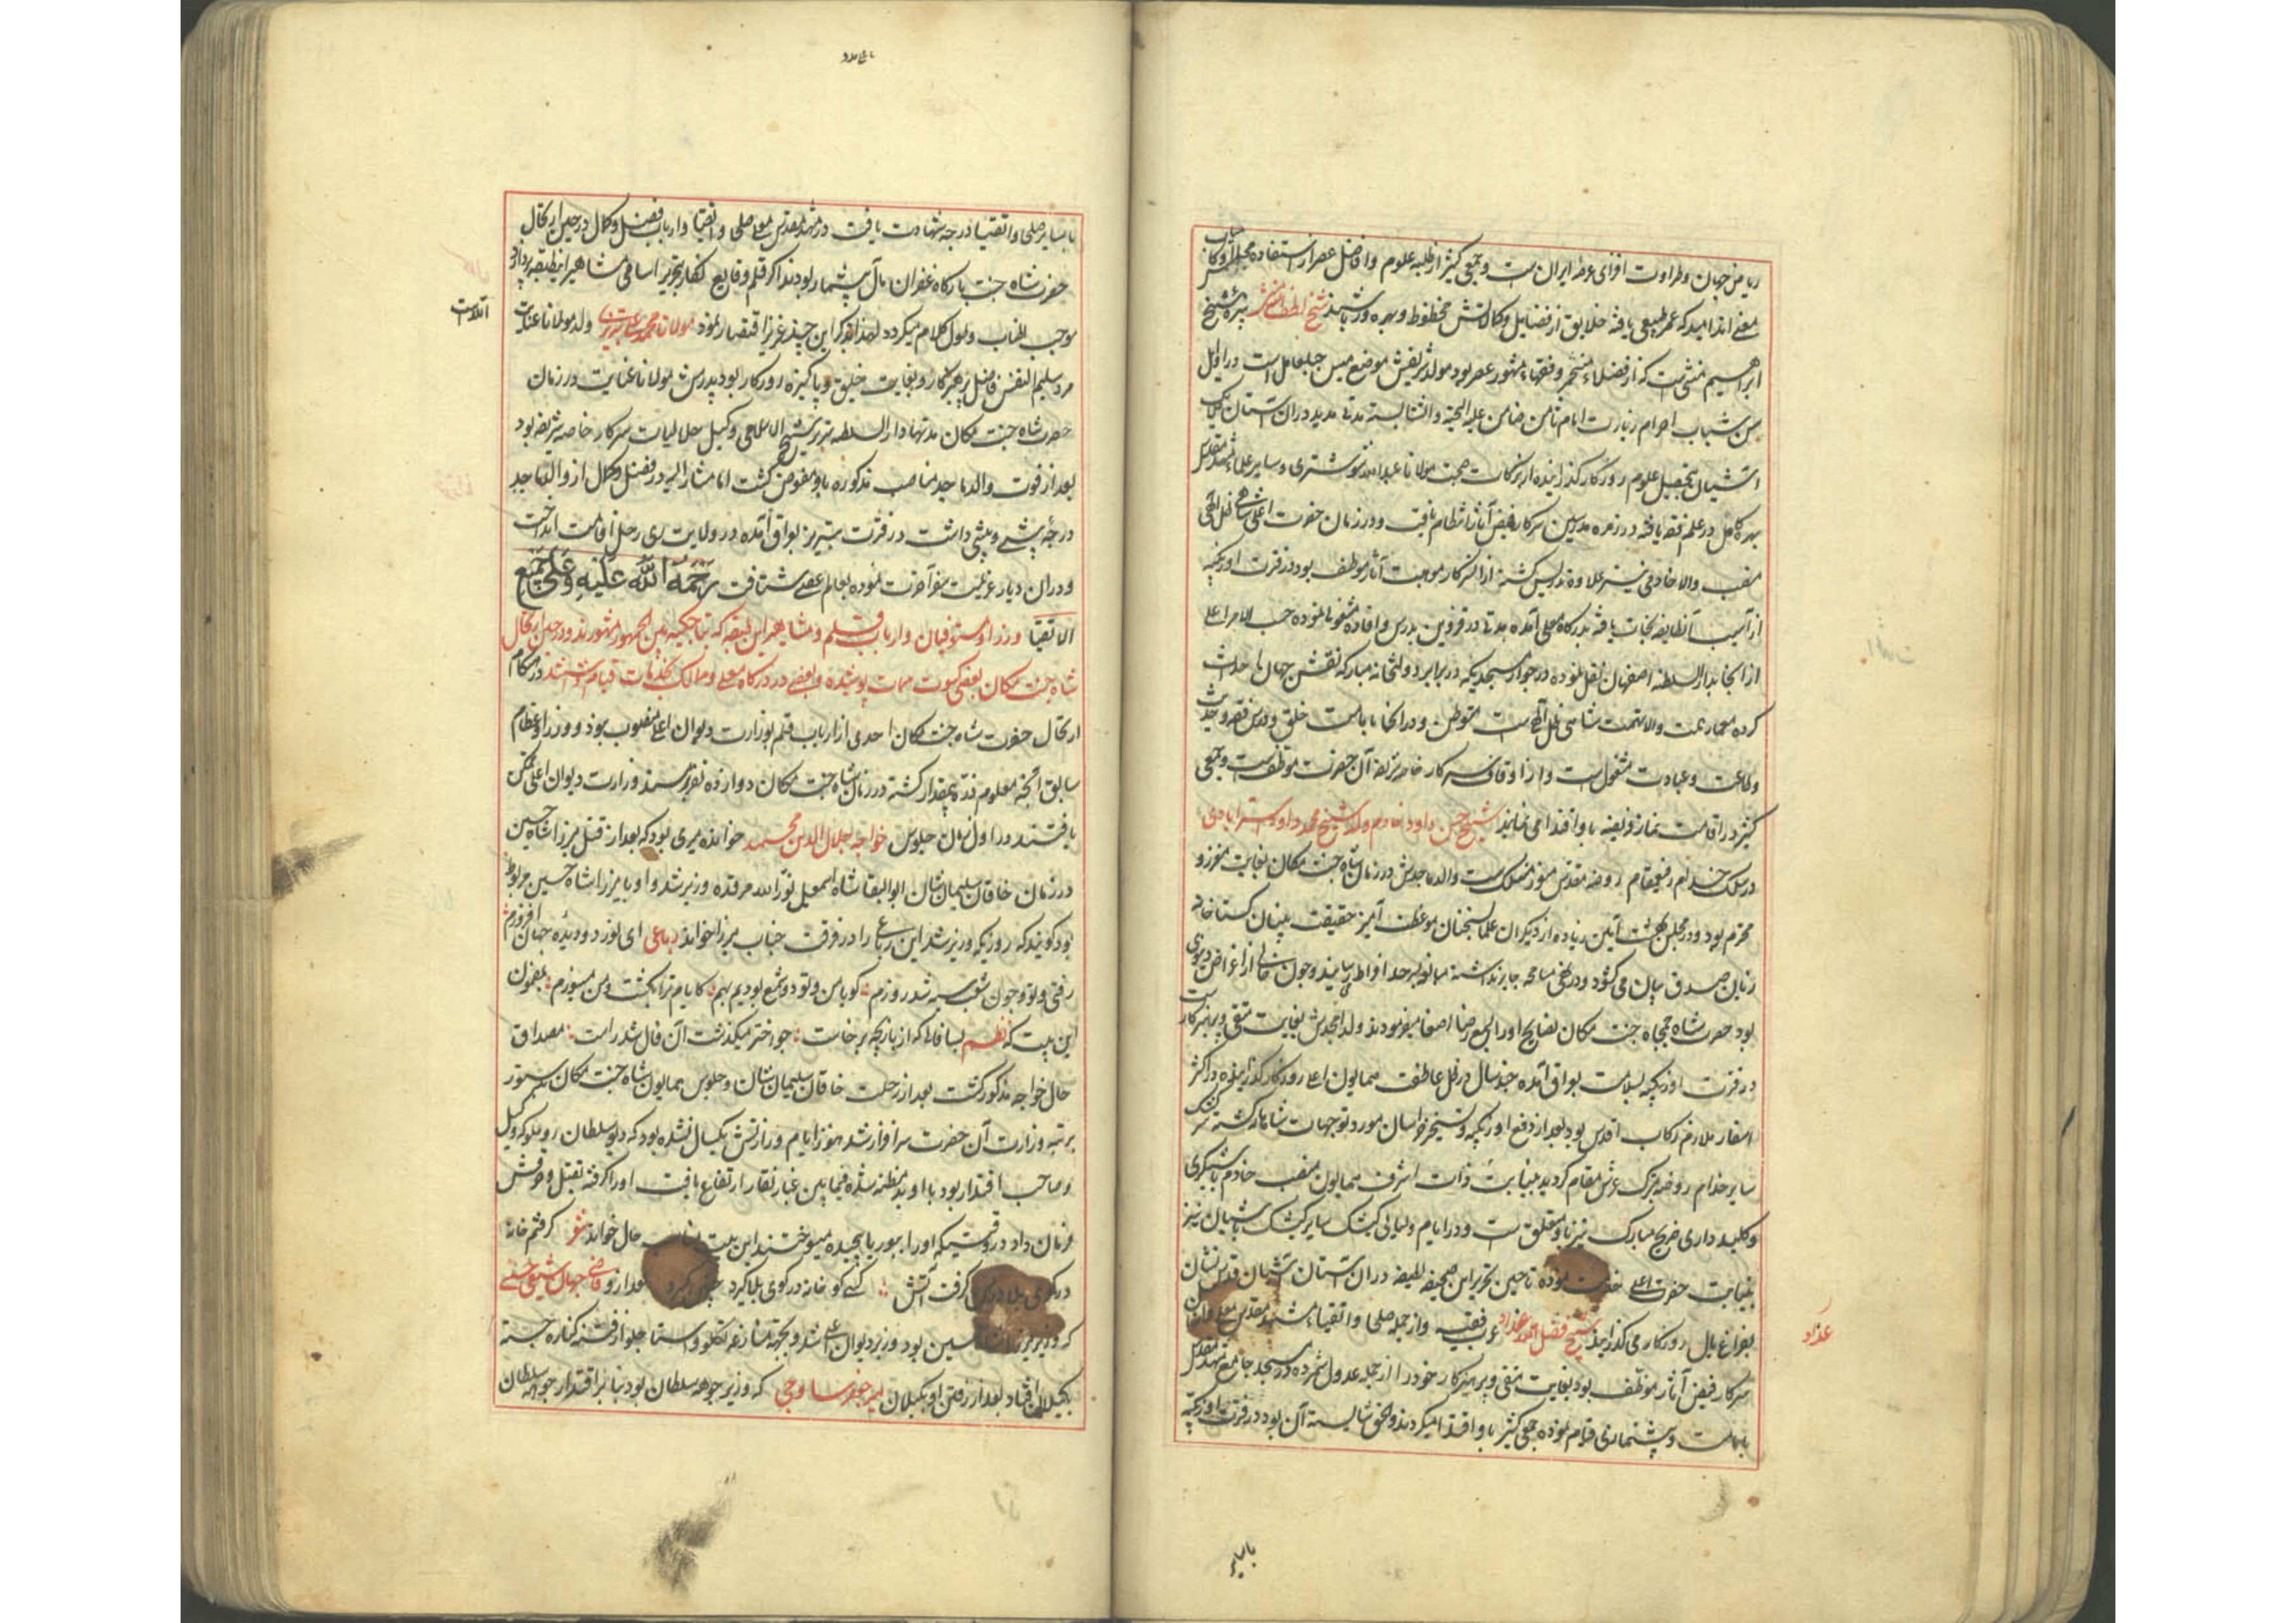 ریاض جهان و طراوت افزای عرصه ایران است و جمعی کثیر از طلبه علوم و افاضل عصر از استفاده مجلس
معنی اند امید که عمر طبیعی یافته خلایق از فضایل و کمالاتش محظوظ و بهره ور باشند شیخ لطف الله نبیره شیخ
ابراهیم منشی است که از فضلاء متبحر و فقهاء مشهور عصر بود مولد شریفش موضع میس جبل عامل است در اوایل
سن شباب احرام زیارت امام ثامن ضامن علیه التحیة و الثنا بسته مدتی مدید در آن آستان ملایک
آشیان بتحصیل علوم روزگار گذرانیده از برکات صحبت مولانا عبدالله شوشتری و سایر علماء مشهد مقدس
بهره کامل در علم فقه یافته در زمره مدرسین سرکار فیض آثار انتظام یافت و در زمان حضرت اعلی شاهی ظل اللهی
منصب والا خادمی نیز علاوه تدریس گشته از سرکار موهبت آثار موظف بود در فترت اوزبکیه
از آسیب آن طایفه نجات یافته بدرگاه معلی آمده مدتی در قزوین بدرس و افاده مشغولی نموده حسب الامر اعلی
از آنجا بدار السلطنه اصفهان نقل نموده در جوار مسجدیکه در برابر دولتخانه مبارکه نقش جهان احداث
کرده معمار همت والا نهمت شاهی ظل اللهی است متوطن و در آنجا بامامت خلق و درس فقه و حدیث
و طاعت و عبادت مشغول است و از اوقاف سرکار خاصه شریفه آن حضرت موظف است و جمعی
کثیر در اقامت نماز فریضه باو اقتدا می نمایند شیخ حسن داود خادم ولد شیخ محمد داود استرابادی
در سلک خدام رفیع مقام روضه مقدس منور منسلک است والد ماجدش در زمان شاه جنت مکان بغایت معزز و
محترم بود و در مجلس بهشت آیین زیاده از دیگران علما سخنان موعظت آمیز حقیقت بنیان گستاخانه
زبان صدق بیان می گشود و در حق مسامحه جایز نداشته مبالغه بسرحد افراط می رسانید و چون خالی از اغراض دنیوی
بود حضرت شاه جمجاه جنت مکان نصایح او را بسمع رضا اصغا میفرمودند ولد امجدش بغایت متقی و پرهیزکار است
در فترت اوزبکیه بسلامت بعراق آمده چند سال در ظل عاطفت همایون اعلی روزگار گذرانیده در اکثر
اسفار ملازم رکاب اقدس بود بعد از دفع اوزبکیه و تسخیر خراسان مورد توجهات شاهانه گشته سرکشیک
سایر خدام روضه متبرک عرش مقام گردید بنیابت ذات اشرف همایون منصب خادم باشیگری
و کلید داری ضریح مبارک نیز باو متعلق است و در ایام و لیالی کشیک سایر کشیک باشیان نیز
بنیابت حضرت اعلی خدمت نموده تا حین تحریر این صحیفه لطیفه در آن آستان آشیان قدس نشان
بفراغ بال روزگار می گذراند شیخ فضل الله عرب فقیه و از جمله صلحا و اتقیاء مشهد مقدس معلی و از آن
سرکار فیض آثار موظف بود بغایت متقی و پرهیزکار خود را از جمله عدول شمرده در مسجد جامع مشهد مقدس
بامامت و پیشنمازی قیام نموده جمعی کثیر باو اقتدا میکردند و الحق شایسته آن بود در فترت اوزبکیه
با سایر
عذار
با سایر صلحا و اتقیا درجه شهادت یافت در مشهد مقدس معلی صلحا و اتقیا و ارباب فضل و کمال در حین ارتحال
حضرت شاه جنت بارگاه غفران مآل بیشمار بودند اگر قلم وقایع نگار بتحریر اسامی مشاهیر این طبقه پردازد
موجب اطناب و طول کلام میگردد لهذا بذکر این چند عزیز اقتصار نمود مولانا محمد علی تبریزی ولد مولانا عنایت
مرد سلیم النفس فاضل پرهیزکار و بغایت خلیق و پاکیزه روزگار بود پدرش مولانا عنایت در زمان
حضرت شاه جنت مکان مدتها در دار السلطنه تبریز شیخ الاسلامی و وکیل حلالیات سرکار خاصه شریفه بود
بعد از فوت والد ماجد مناصب مذکوره باو مفوض گشت اما مشار الیه در فضل و کمال از والد ماجد
درجه پیشی و بیشی داشت در فترت تبریز بعراق آمده در ولایت ری رحل اقامت انداخت
و در آن دیار عزیمت سفر آخرت نموده بعالم عقبی شتافت رحمة الله علیه و علی جمیع
الاتقیا وزرا و مستوفیان و ارباب قلم و مشاهیر این طبقه که بین الجمهور مشهورند و در حین ارتحال
شاه جنت مکان بعضی کسوت ممات پوشیده و بعضی در درگاه معلی و ممالک بخدمات قیام داشتند در هنگام
ارتحال حضرت شاه جنت مکان احدی از ارباب قلم بوزارت دیوان اعلی منصوب نبود و وزراء عظام
سابق آنچه معلوم ذره بیمقدار گشته در زمان شاه جنت مکان دوازده نفر بر مسند وزارت دیوان اعلی تمکن
یافتند در اول زمان جلوس خواجه جلال الدین محمد خوانده میری بود که بعد از قتل میرزا شاه حسین
در زمان خاقان سلیمان شان ابو البقا شاه اسمعیل نور الله مرقده وزیر شد و او با میرزا شاه حسین مربوط
بود گویند که روزیکه وزیر شد این رباعی را در فرقت جناب میرزا خواند رباعی ای نور دو دیده جهان افروزم
رفتی و تو و چون شب سیه شد روزم گویا من و تو دو شمع بودیم بهم کایام ترا بکشت و من میسوزم بمضمون
این بیت که نظم بسا فالی که از بازیچه برخاست چو اختر میگذشت آن فال شد راست مصداق
حال خواجه مذکور گشت بعد از رحلت خاقان سلیمان شان و جلوس همایون شاه جنت مکان بدستور
برتبه وزارت آن حضرت سرافراز شد هنوز ایام وزارتش یکسال نشده بود که دیو سلطان روملو که وکیل
و صاحب اقتدار بود با او بد مظنه شده فیمابین غبار نقار ارتفاع یافت او را گرفته بقتل و حرقش
فرمان داد در وقتیکه او را ببوریا پیچیده میسوختند این بیت حال خواند شعر گرفتم خانه
در کوی بلا در من گرفت آتش کسی کو خانه در کوی بلا گیرد چنین گیرد بعد از او قاضی جهان سیفی حسنی
که وزیر میرزا شاه حسین بود وزیر دیوان اعلی شد و بجهة منازعه تکلو و استاجلو از فتنه کناره جسته
بگیلان افتاد بعد از رفتن او بگیلان میر جعفر ساوجی که وزیر جوهه سلطان بود بنابر اقتدار جوهه سلطان